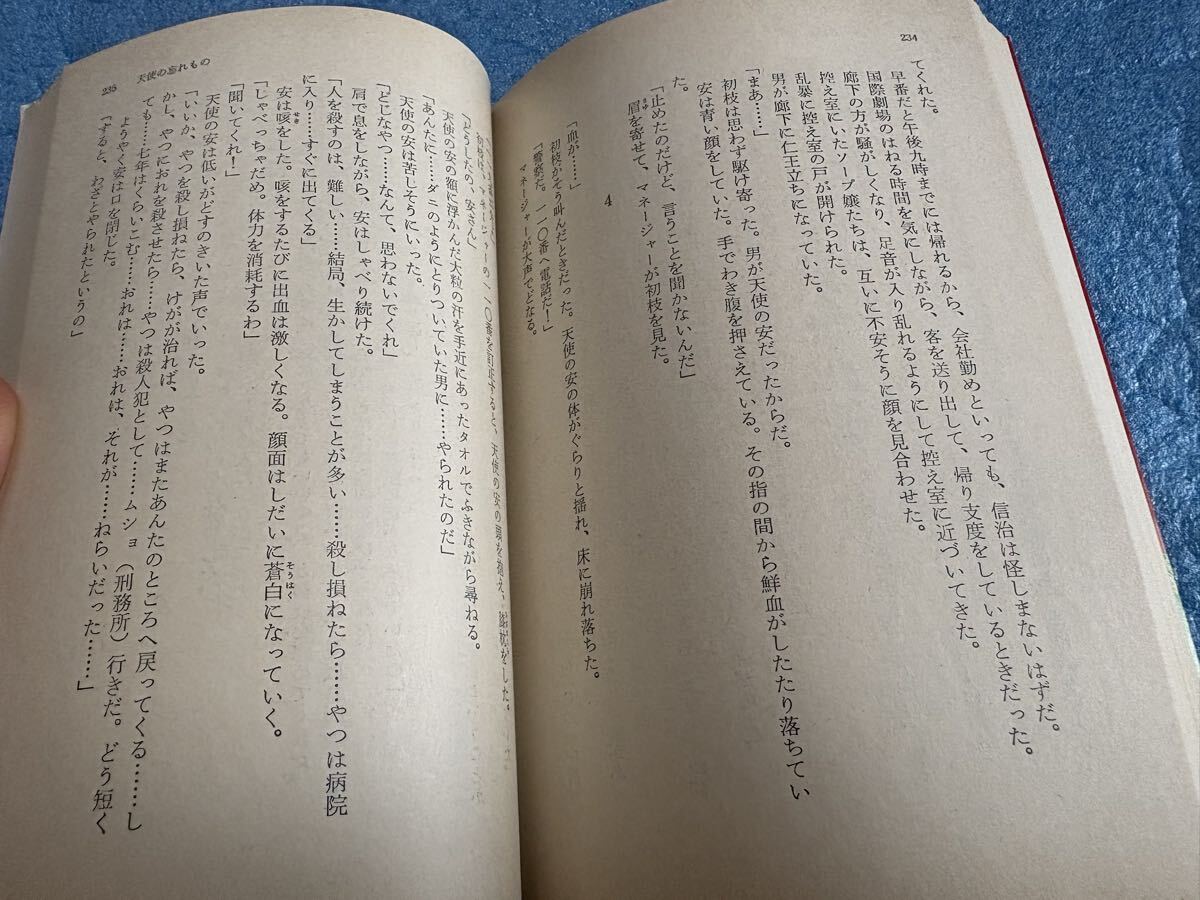 234
てくれた。
早番だと午後九時までには帰れるから、会社勤めといっても、信治は怪しまないはずだ。
国際劇場のはねる時間を気にしながら、客を送り出して、帰り支度をしているときだった。
廊下の方が騒がしくなり、足音が入り乱れるようにして控え室に近づいてきた。
控え室にいたソープ嬢たちは、互いに不安そうに顔を見合わせた。
乱暴に控え室の戸が開けられた。
男が廊下に仁王立ちになっていた。
「まあ……」
初枝は思わず駆け寄った。男が天使の安だったからだ。
安は青い顔をしていた。手でわき腹を押さえている。その指の間から鮮血がしたたり落ちてい
た。
「止めたのだけど、言うことを聞かないんだ」
眉を寄せて、マネージャーが初枝を見た。
まゆ
4
「血が……」
初枝がそう叫んだときだった。天使の安の体がぐらりと揺れ、床に崩れ落ちた。
「警察だ。一一〇番へ電話だ！」
マネージャーが大声でどなる。
初枝は、マネージャーの一一〇番を訂正すると、天使の安の頭を抱え、膝枕をした。
「どうしたの、安さん」
天使の安の額に浮かんだ大粒の汗を手近にあったタオルでふきながら尋ねる。
「あんたに……ダニのようにとりついていた男に……やられたのだ」
天使の安は苦しそうにいった。
「どじなやつ……なんて、思わないでくれ」
肩で息をしながら、安はしゃべり続けた。
「人を殺すのは、難しい……結局、生かしてしまうことが多い……殺し損ねたら……やつは病院
に入り……すぐに出てくる」
安は咳をした。咳をするたびに出血は激しくなる。顔面はしだいに蒼白になっていく。
せき
そうはく
「しゃべっちゃだめ。体力を消耗するわ」
「聞いてくれ！」
天使の安は低いがどすのきいた声でいった。
「いいか、やつを殺し損ねたら、けがが治れば、やつはまたあんたのところへ戻ってくる……し
かし、やつにおれを殺させたら……やつは殺人犯として……ムショ（刑務所）行きだ。どう短く
ても……七年はくらいこむ……おれは……おれは、それが……ねらいだった……」
ようやく安は口を閉じた。
「すると、わざとやられたというの」
天使の忘れもの
235